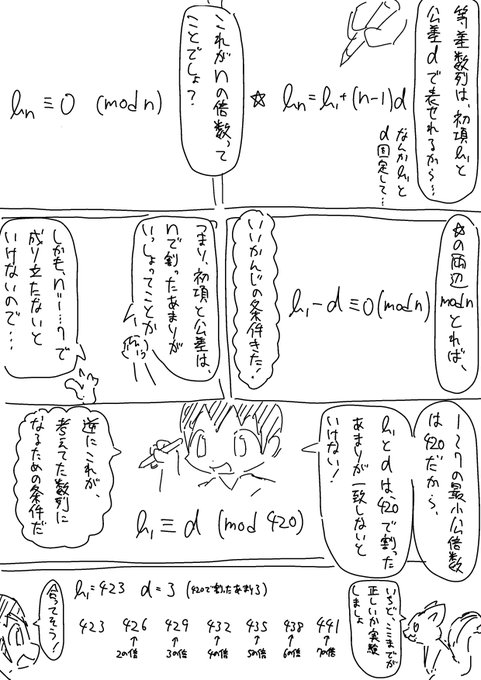 等差数列は、初項h₁と
公差dで表せれるから…
なんかh₁と
d固定して…
☆ hn=h₁+(n-1)d
これがnの倍数って
ことでしょ？
hn≡0 (mod n)
☆の両辺mod nとれば、
h₁-d≡0(mod n)
いいかんじの条件きた！
つまり、初項と公差は、
nで割ったあまりが
いっしょってことか
しかも、n=1…7で
成り立たないと
いけないので…
1〜7の最小公倍数
は420だから、
h₁とdは、420で割った
あまりが一致しないと
いけない！
h₁≡d (mod 420)
逆にこれが、
考えてた数列に
なるための条件だ
いちど、ここまでが
正しいか実験
しましょ
h₁=423 d=3 (420で割ったあまり3)
423 426 429 432 435 438 441
2の倍 3の倍 4の倍 5の倍 6の倍 7の倍
合ってそう！